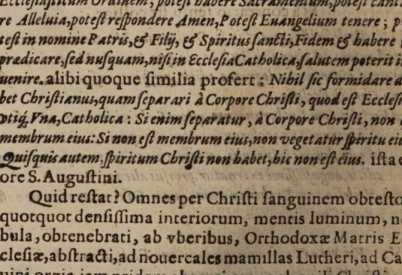 Ecclesiasticum Ordinem, potest habere Sacramentum, potest canta
re Alleluia, potest respondere Amen, Potest Euangelium tenere; p
test in nomine Patris, & Filij, & Spiritus sancti, Fidem & habere
predicare, sed nusquam, nisi in Ecclesia Catholica, salutem poterit i
uenire. alibi quoque similia profert: Nihil sic formidare d
bet Christianus, quam separari à Corpore Christi, quod est Ecclesi
Vna, Catholica: Si enim separatur, à Corpore Christi, non
membrum eius: Si non est membrum eius, non vegetatur spiritu ei
Quisquis autem, spiritum Christi non habet, hic non est eius. ista e
ore S. Augustini.
Quid restat? Omnes per Christi sanguinem obtesto
quotquot densissima interiorum, mentis luminum, n
bula, obtenebrati, ab vberibus, Orthodoxæ Matris E
clesiæ, abstracti, ad nouercales mamillas Lutheri, ad Ca